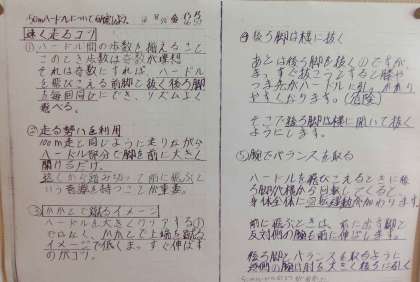 50mハードルについて
速く走るコツ
①ハードル間の歩数を揃えること
このとき歩数は奇数が理想
それは奇数にすれば ハードル
を飛びこえる前脚と抜く後ろ脚
を毎回同じにでき、リズムよく
走る勢いを利用
100m走と同じように走りながら
ハードル部分で脚を前に大きく
開くだけ
遠くから踏み切って前に飛ぶと
いう意識を持つことが重要。
③かかとで蹴るイメージ
ハードルを大きくクリアする
ではなく、かかとで上端を蹴る
イメージで低くま、すぐ伸ばす
のがコツ。
④後ろ脚は横に抜く
あとは後ろ脚を抜くのですが
ま、すぐ抜こうとすると膝や
つま先がハードルに引っかかり
やすくなります。(危険)
そこで後ろ脚は横に開いて抜く
ようにします。
⑤腕でバランスを取る
ハードルを飛びこえるときに後
ろ脚が横から回転してくると
身体全体に回転運動が加わります。
前に飛ぶときは、前に出す脚と
反対側の腕も前に伸ばします。
後ろ脚とバランスを取るように
反対側の腕は肘を大きく後ろに引く